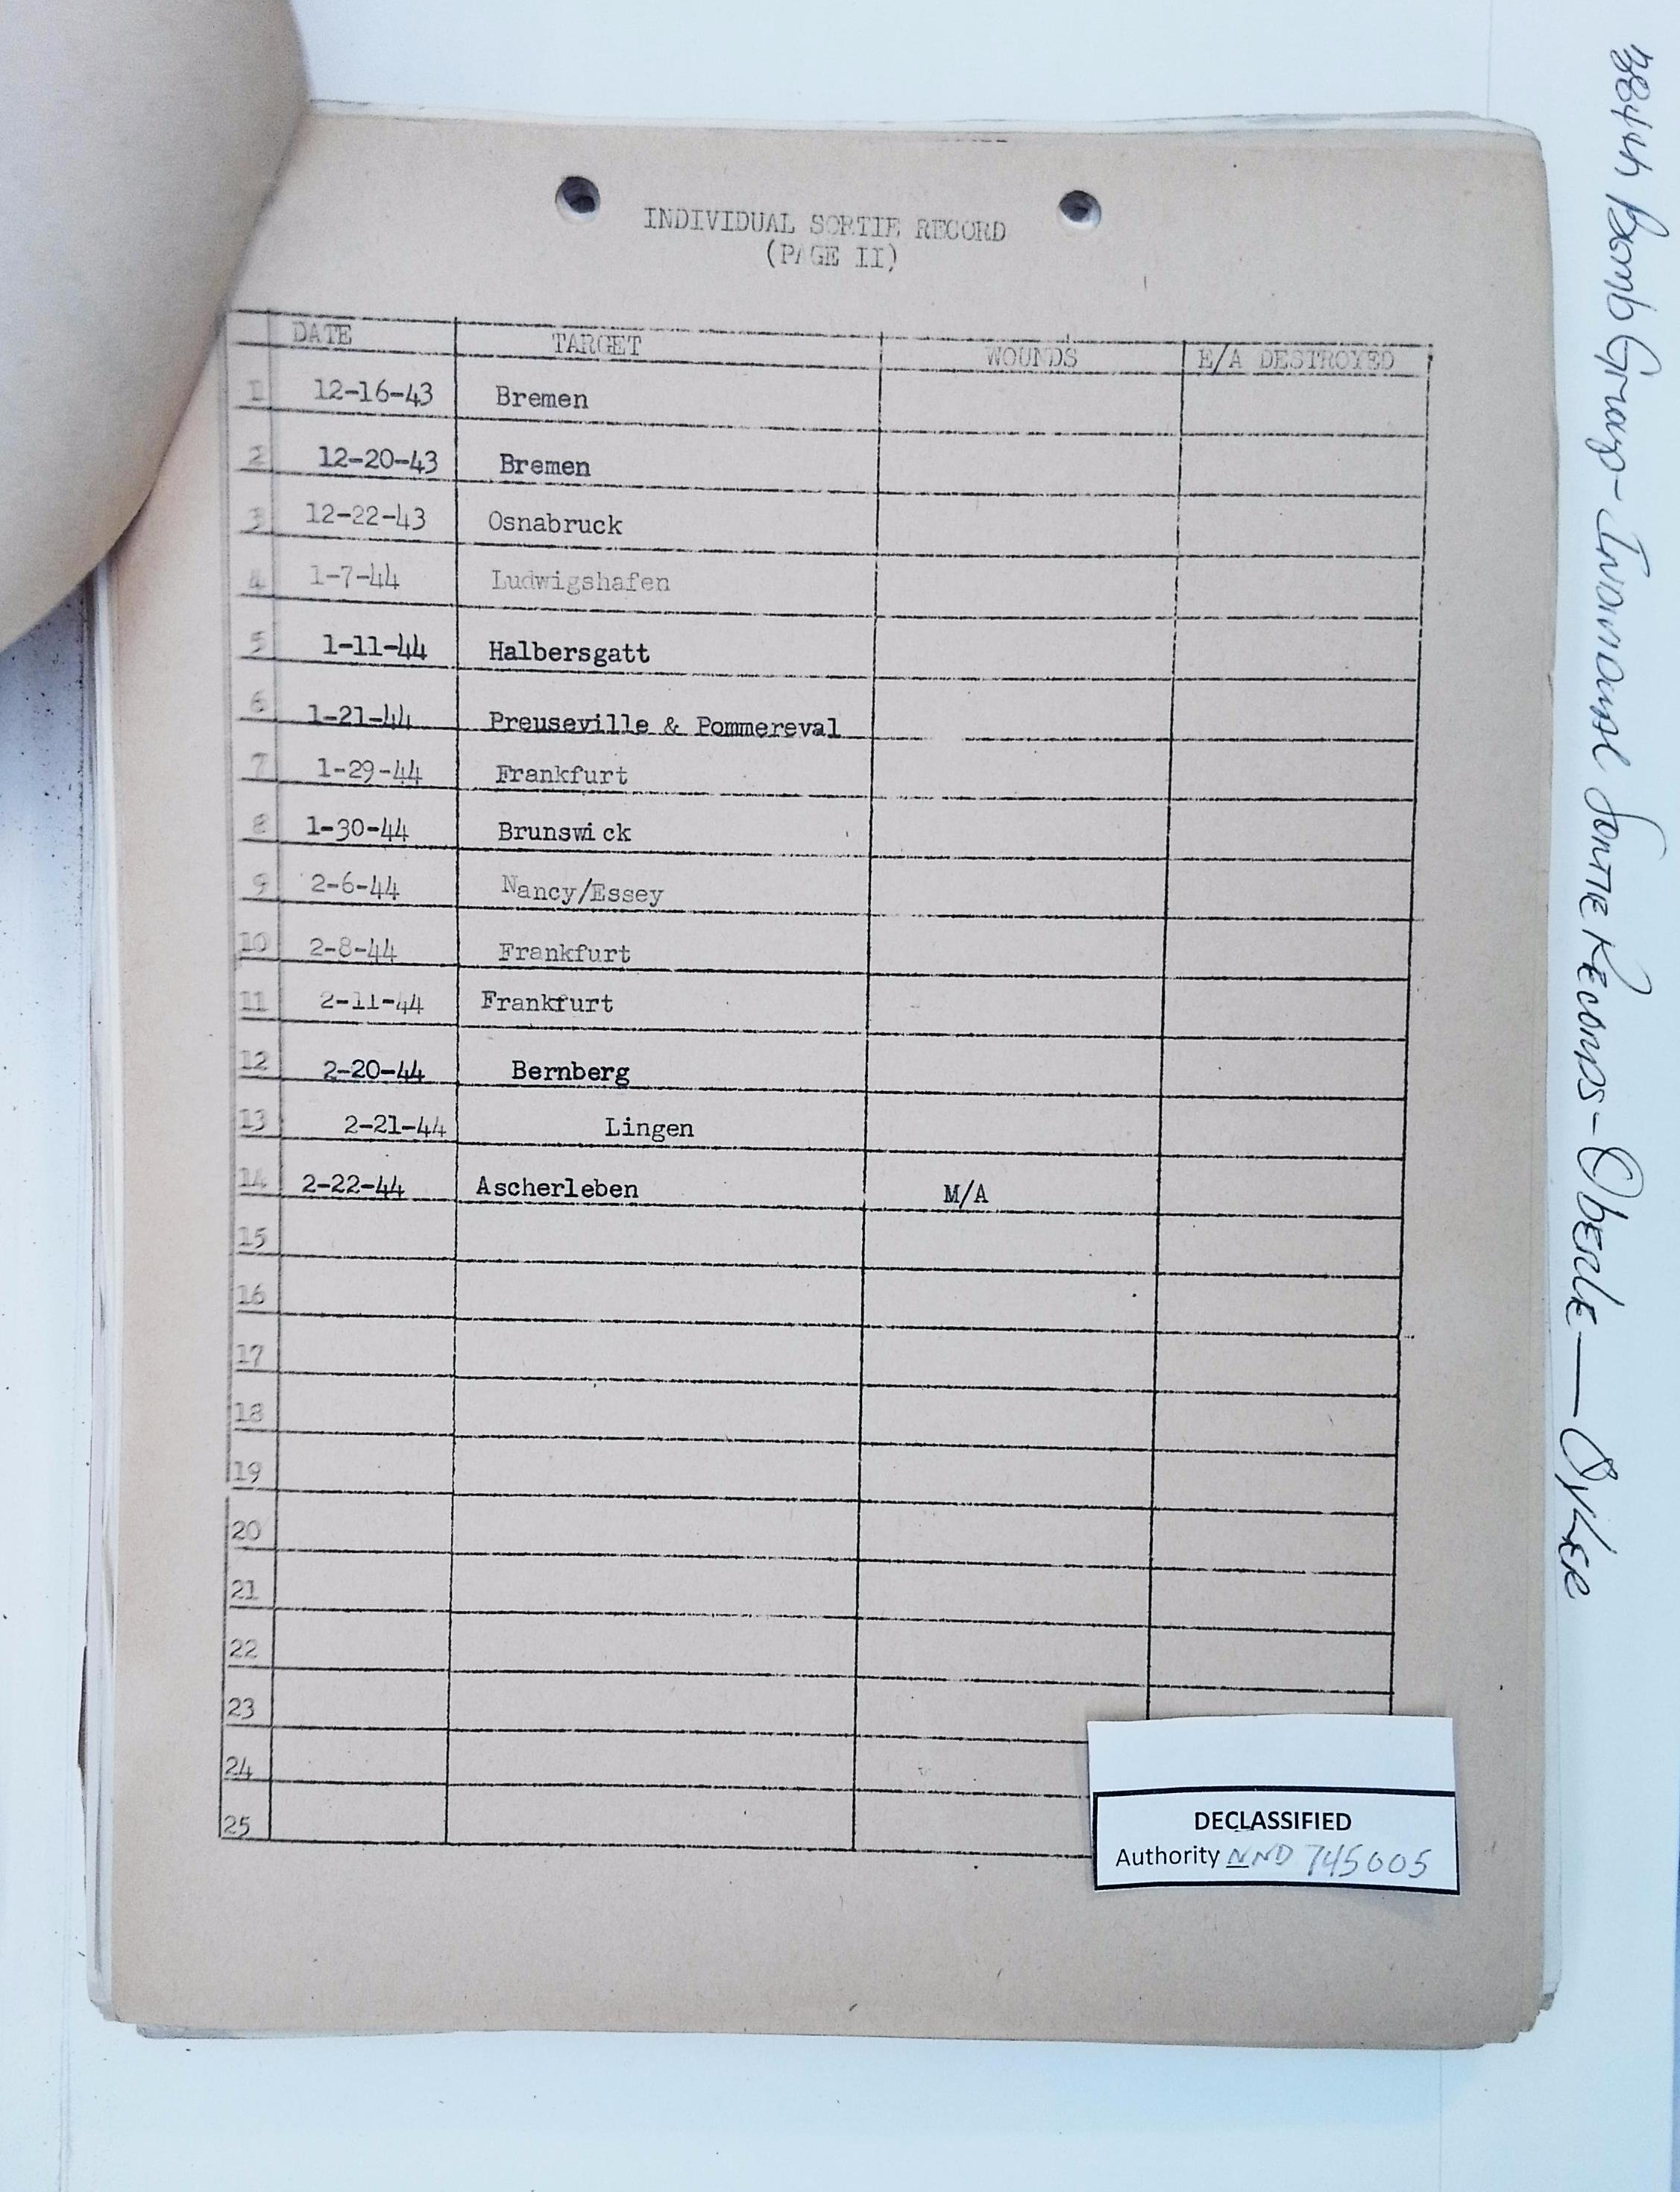 INDIVIDUAL SORTIE RECORD
(PAGE II)
DATE TARGET WOUNDS E/A DESTROYED
1 12-16-43 Bremen
2 12-20-43 Bremen
3 12-22-43 Osnabruck
4 1-7-44 Ludwigshafen
5 1-11-44 Halbersgatt
6 1-21-44 Preuseville & Pommereval
7 1-29-44 Frankfurt
8 1-30-44 Brunswick
9 2-6-44 Nancy/Essey
10 2-8-44 Frankfurt
11 2-11-44 Frankfurt
12 2-20-44 Bernberg
13 2-21-44 Lingen
14 2-22-44 Ascherleben M/A
15
16
17
18
19
20
21
22
23
24
25
DECLASSIFIED
Authority NND 745005
384th Bomb Group - Individual Sortie Records - Oberle — Oyler